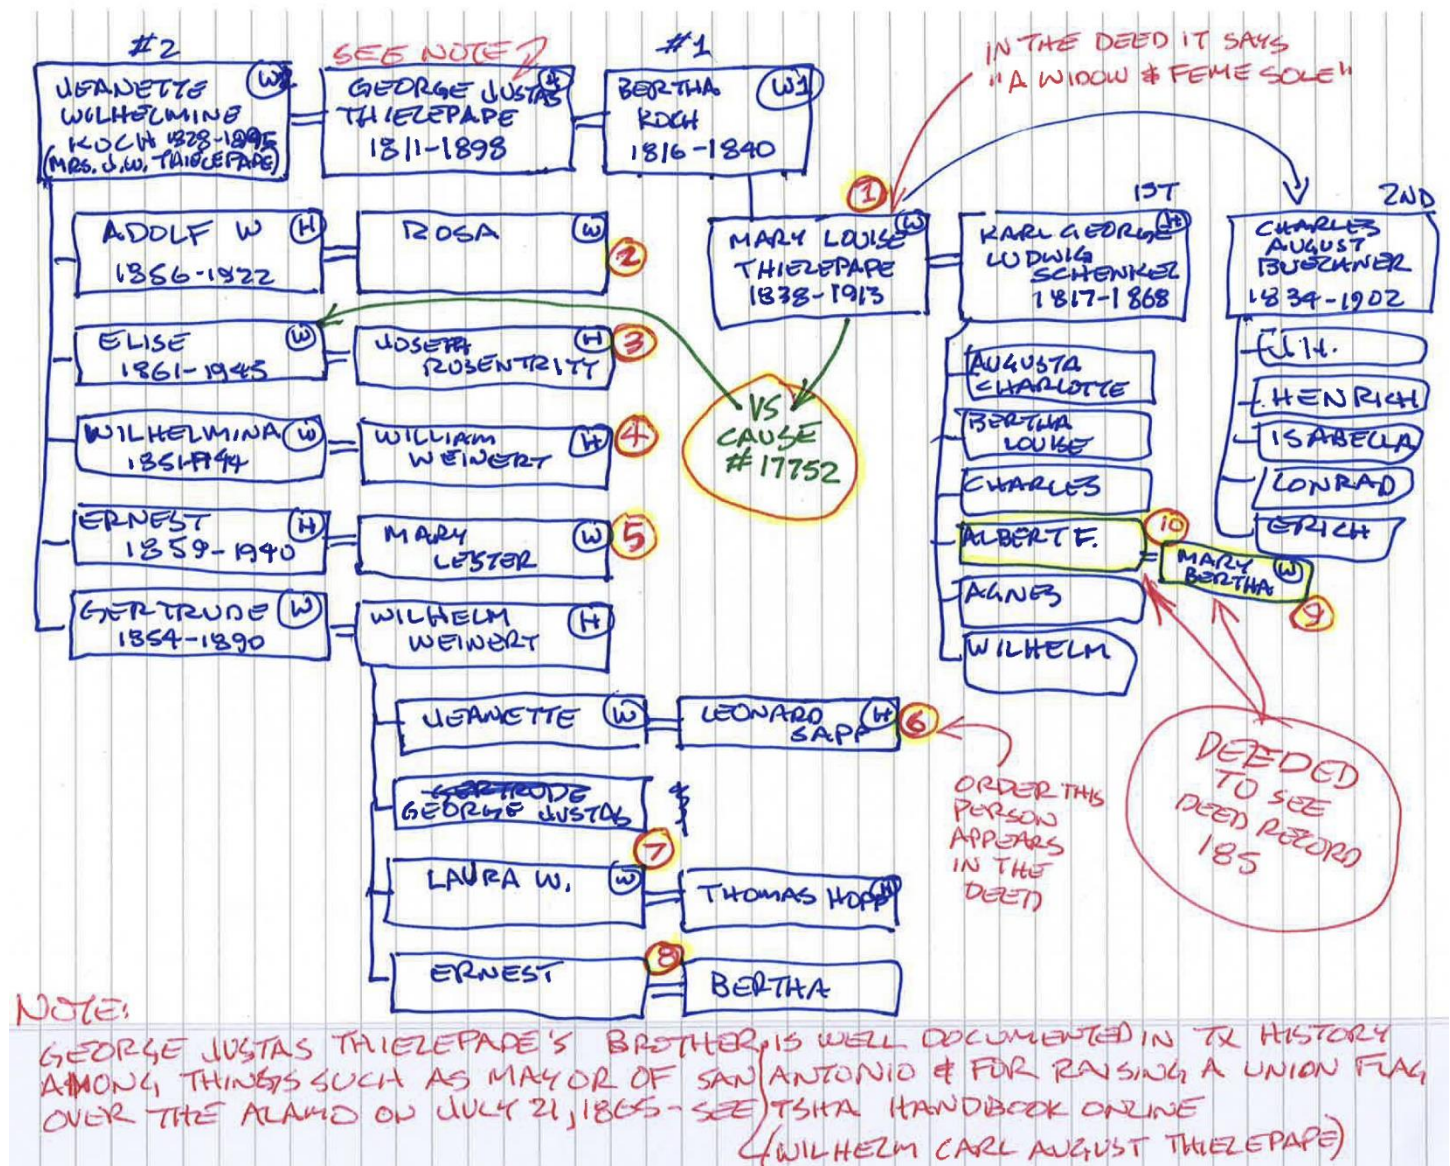 #2
SEE NOTE
#1
IN THE DEED IT SAYS
"A WIDOW & FEME SOLE"
JEANETTE W
WILHELMINE
KOCH 1828-1895
(MRS. J.W. THIELEPAPE)
GEORGE JUSTAS H
THIELEPAPE
1811-1898
BERTHA W1
KOCH
1816-1840
ADOLF W H
1856-1922
ROSA W
2
ELISE W
1861-1945
JOSEPH H
ROSENTRITT
3
WILHELMINA W
WILLIAM H
WEINERT
4
ERNEST H
1859-1940
MARY W
LESTER
5
GERTRUDE W
1854-1890
WILHELM H
WEINERT
JEANETTE W
LEONARD H
SAPP
6
ORDER THIS
PERSON
APPEARS
IN THE
DEED
GEORGE JUSTAS
7
LAURA W. W
THOMAS HOPP H
ERNEST
8
BERTHA
1
MARY LOUISE W
THIELEPAPE
1838-1913
VS
CAUSE
#17752
1ST
KARL GEORGE H
LUDWIG
SCHENKEL
1817-1868
AUGUSTA
CHARLOTTE
BERTHA
LOUISE
CHARLES
ALBERT F.
10
MARY W
BERTHA
9
AGNES
WILHELM
2ND
CHARLES
AUGUST
BUECHNER
1834-1902
HENRICH
ISABELLA
CONRAD
ERICH
DEEDED
TO SEE
DEED RECORD
185
NOTE:
GEORGE JUSTAS THIELEPAPE'S BROTHER, IS WELL DOCUMENTED IN TX HISTORY
AMONG THINGS SUCH AS MAYOR OF SAN ANTONIO & FOR RAISING A UNION FLAG
OVER THE ALAMO ON JULY 21, 1865 - SEE TSHA HANDBOOK ONLINE
(WILHELM CARL AUGUST THIELEPAPE)